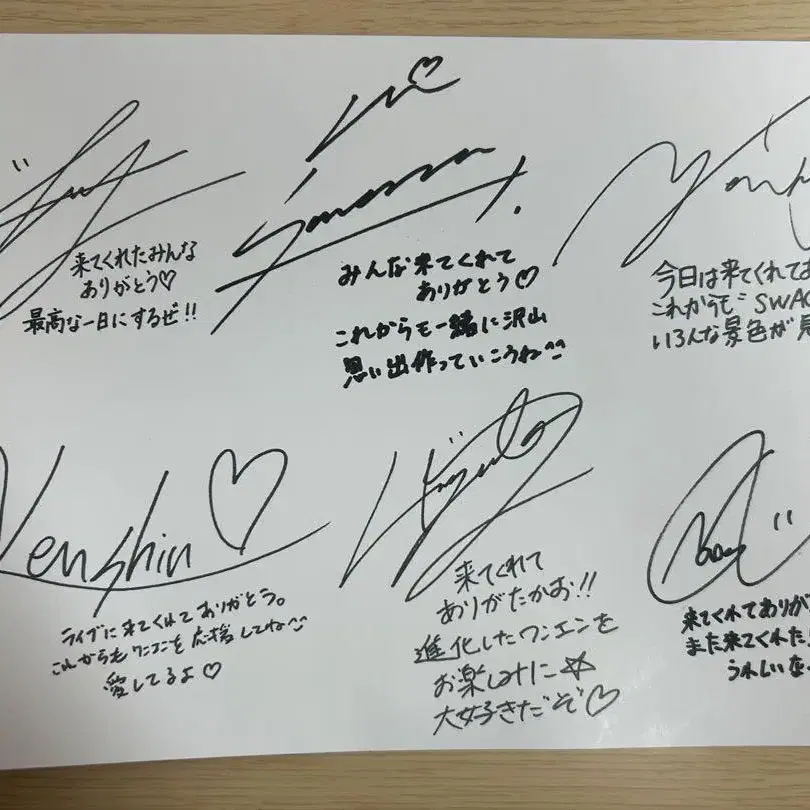 来てくれたみんな
ありがとう♡
最高な一日にするぜ!!
みんな来てくれて
ありがとう♡
これからも一緒に沢山
思い出作っていこうね^^
今日は来てくれて
これからも SWAG
いろんな景色が
Kenshin ♡
ライブに来てくれてありがとう。
これからもワンエンを応援してね
愛してるよ♡
Hayuto
来てくれて
ありがたかお!!
進化したワンエンを
お楽しみに☆
大好きだぞ♡
来てくれてありが
また来てくれた
うれしいな